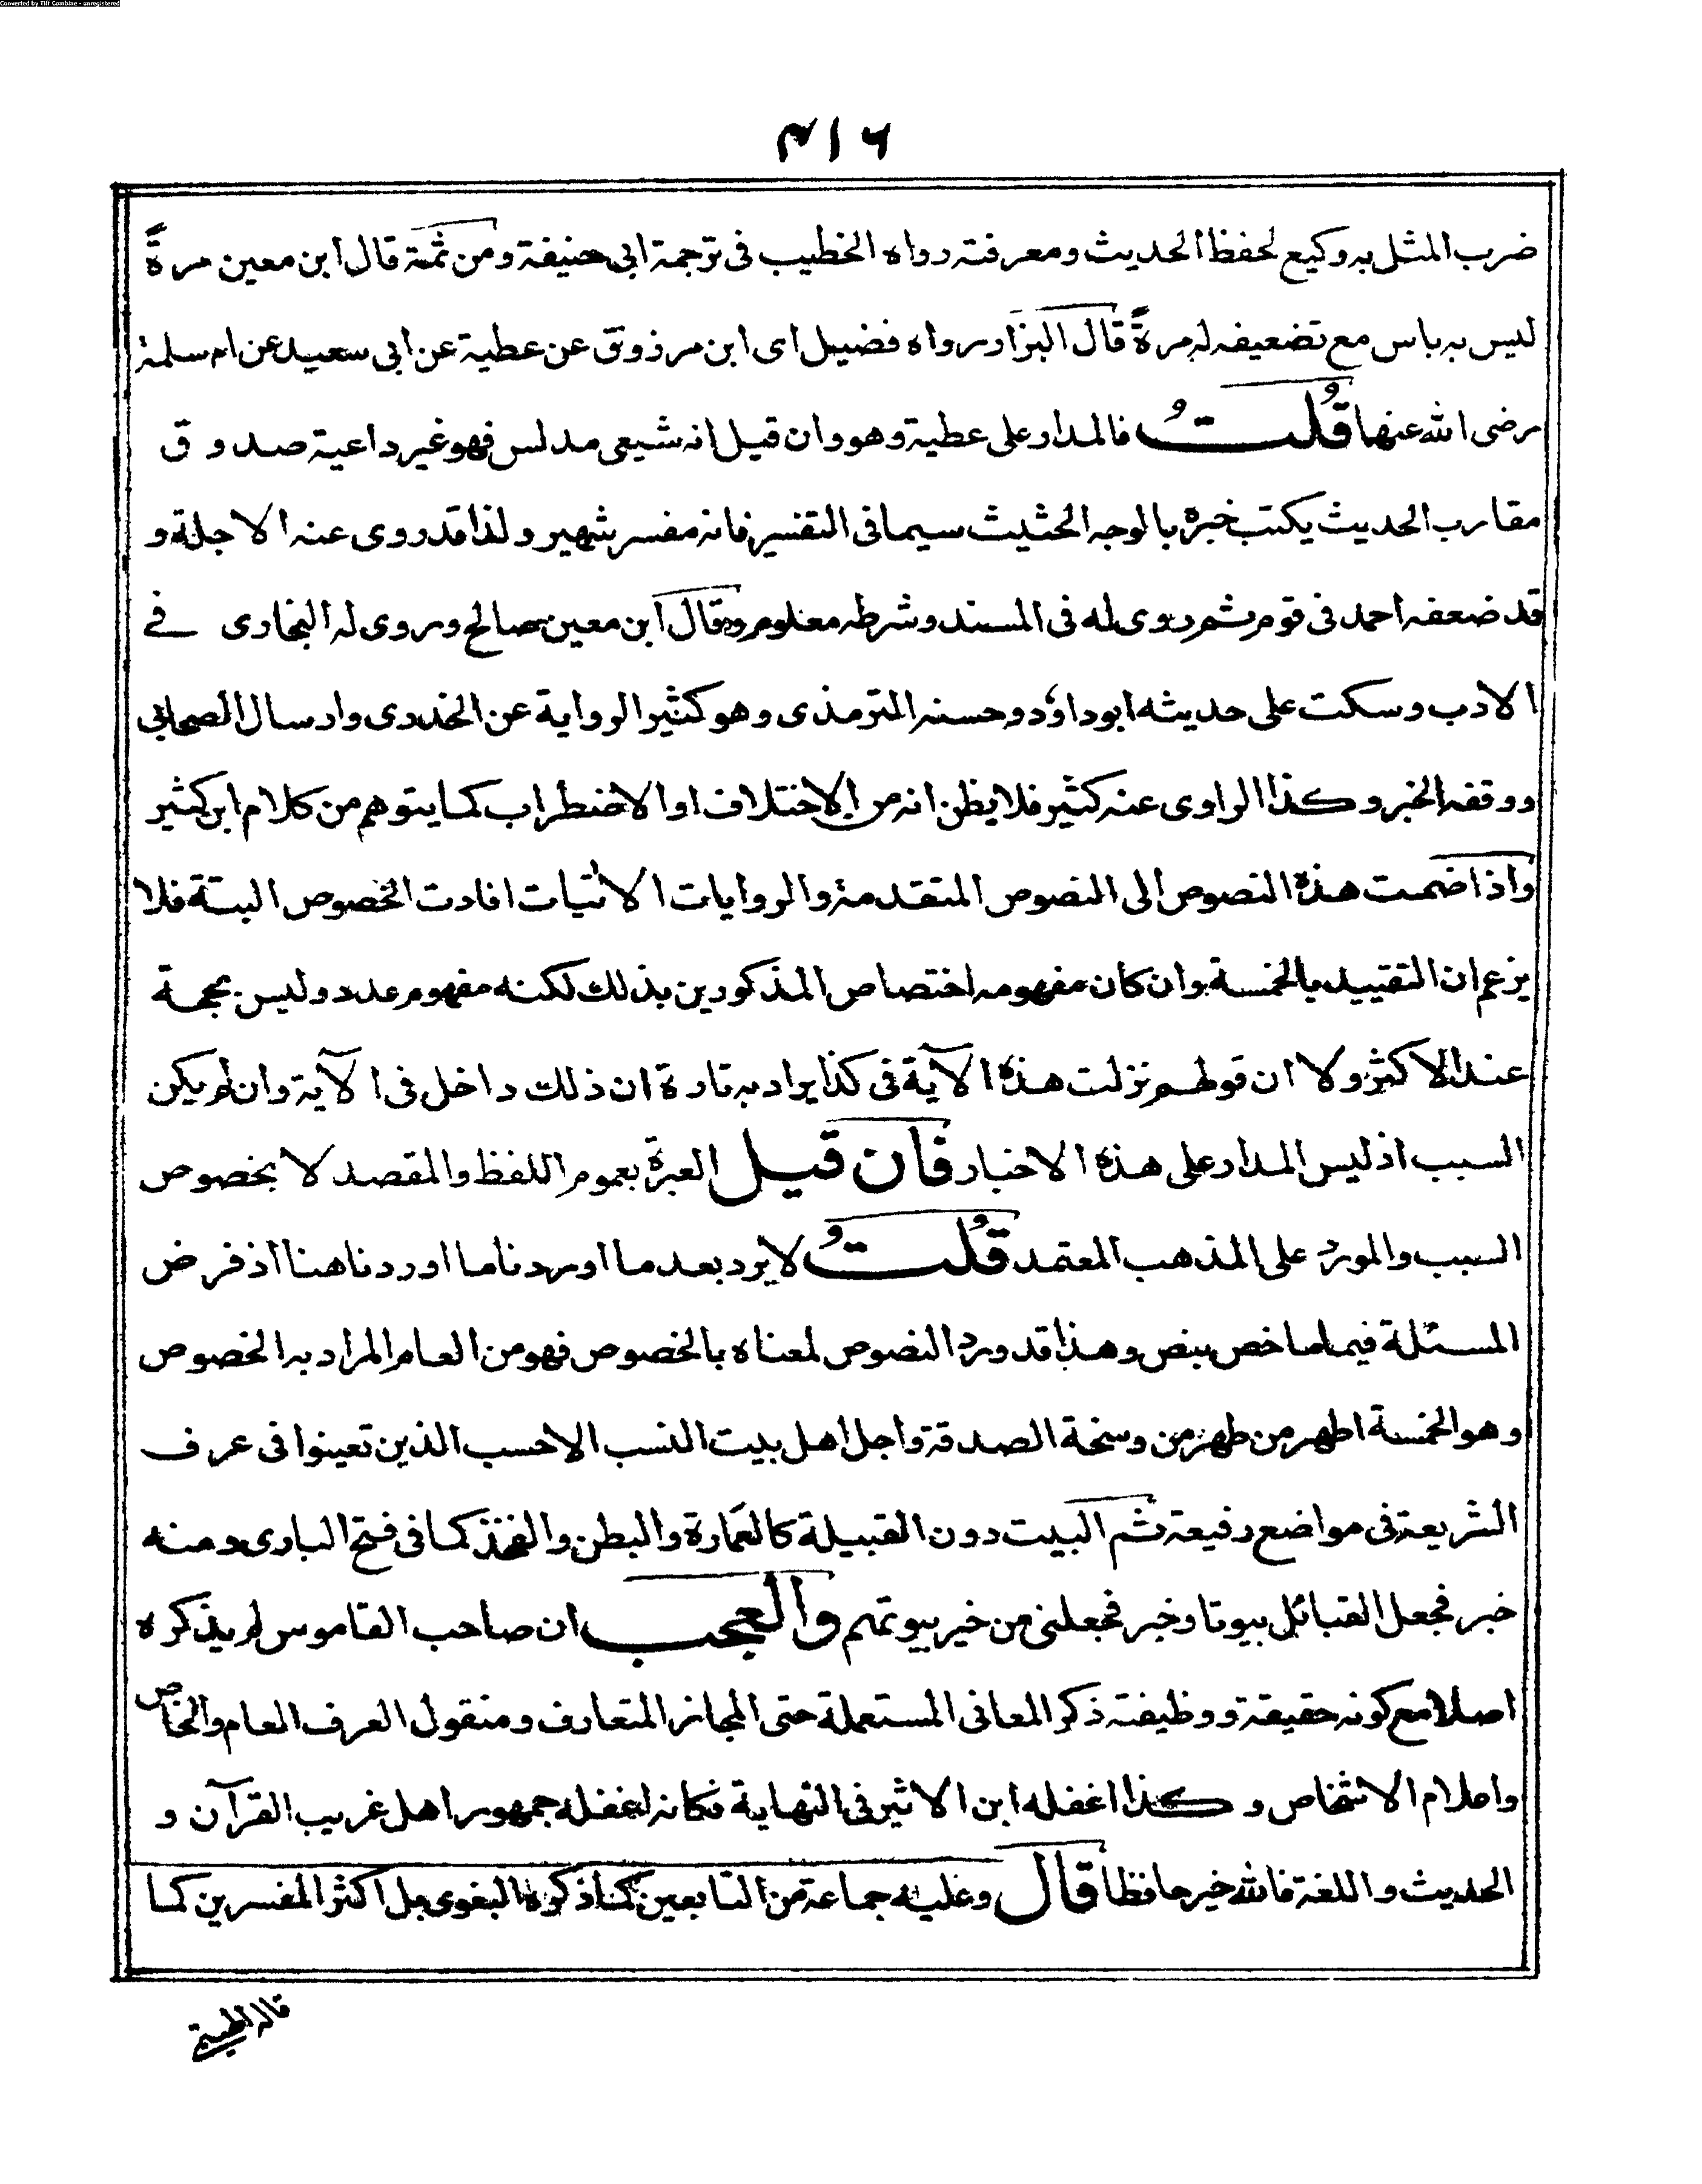 Converted by Tiff Combine - unregistered
۴۱۶
ضرب المثل به وكيع لحفظ الحديث ومعرفته رواه الخطيب فى ترجمة ابى حنيفة ومن ثمة قال ابن معين مرةً
ليس به باس مع تضعيفه له مرةً قال البزار ورواه فضيل اى ابن مرزوق عن عطية عن ابى سعيد عن ام سلمة
رضى الله عنها قُلتُ فالمدار على عطية وهو وان قيل انه شيعى مدلس فهو غير داعية صدوق
مقارب الحديث يكتب خبره بالوجه الحثيث سيما فى التفسير فانه مفسر شهير ولذا قد روى عنه الاجلة و
قد ضعفه احمد فى قوم ثم روى له فى المسند وشرطه معلوم وقال ابن معين صالح وروى له البخارى فے
الادب وسكت على حديثه ابوداؤد وحسنه الترمذى وهو كثير الرواية عن الخدرى وارسال الصحابى
ووقفه الخبر وكذا الراوى عنه كثير فلا يظن انه من الاختلاف او الاضطراب كما يتوهم من كلام ابن كثير
واذا ضمت هذه النصوص الى النصوص المتقدمة والروايات الاتيات افادت الخصوص البتة فلا
يزعم ان التقييد بالخمسة وان كان مفهومه اختصاص المذكورين بذلك لكنه مفهوم عدد وليس بحجة
عند الاكثر ولا ان قولهم نزلت هذه الآية فى كذا يراد به تارة ان ذلك داخل فى الآية وان لم يكن
السبب اذ ليس المدار على هذه الاخبار فان قيل العبرة بعموم اللفظ والمقصد لا بخصوص
السبب والمورد على المذهب المعتمد قُلتُ لا يرد بعد ما اوردنا ما اوردنا هنا اذ فرض
المسئلة فيما ما خص بنص وهذا قد ورد النصوص لمعناه بالخصوص فهو من العام المراد به الخصوص
وهو الخمسة اطهر من طهر من وسخة الصدقة واجل اهل بيت النسب الاحسب الذين تعينوا فى عرف
الشريعة فى مواضع رفيعة ثم البيت دون القبيلة كالعمارة والبطن والفخذ كما فى فتح البارى ومنه
خبر فجعل القبائل بيوتا وخبر فجعلنى من خير بيوتهم والعجب ان صاحب القاموس لم يذكره
اصلا مع كونه حقيقة ووظيفته ذكر المعانى المستعملة حتى المجاز المتعارف ومنقول العرف العام والخاص
واعلام الاشخاص وكذا اغفله ابن الاثير فى النهاية فكانه اغفله جمهور اهل غريب القرآن و
الحديث واللغة فالله خير حافظا قال وعليه جماعة من التابعين كما ذكره البغوى بل اكثر المفسرين كما
قاله